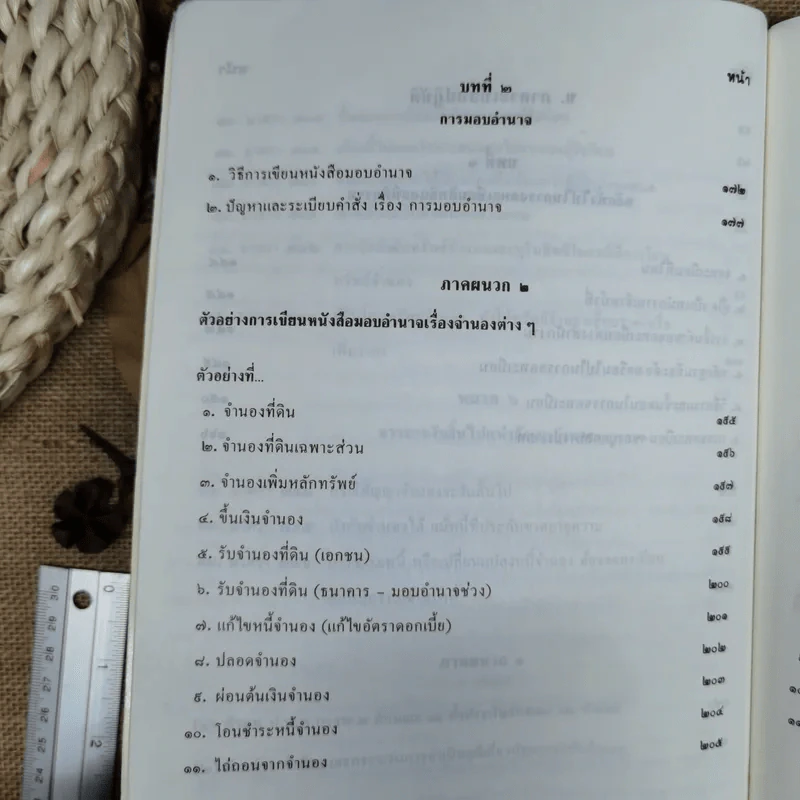 หน้า
บทที่ ๒
การมอบอำนาจ
๑. วิธีการเขียนหนังสือมอบอำนาจ ๑๗๒
๒. ปัญหาและระเบียบคำสั่ง เรื่อง การมอบอำนาจ ๑๗๗
ภาคผนวก ๒
ตัวอย่างการเขียนหนังสือมอบอำนาจเรื่องจำนองต่าง ๆ
ตัวอย่างที่...
๑. จำนองที่ดิน ๑๙๕
๒. จำนองที่ดินเฉพาะส่วน ๑๙๖
๓. จำนองเพิ่มหลักทรัพย์ ๑๙๗
๔. ขึ้นเงินจำนอง ๑๙๘
๕. รับจำนองที่ดิน (เอกชน) ๑๙๙
๖. รับจำนองที่ดิน (ธนาคาร – มอบอำนาจช่วง) ๒๐๐
๗. แก้ไขหนี้จำนอง (แก้ไขอัตราดอกเบี้ย) ๒๐๑
๘. ปลอดจำนอง ๒๐๒
๙. ผ่อนต้นเงินจำนอง ๒๐๓
๑๐. โอนชำระหนี้จำนอง ๒๐๔
๑๑. ไถ่ถอนจากจำนอง ๒๐๕
30
29
28
27
26
25
24
0
1
2